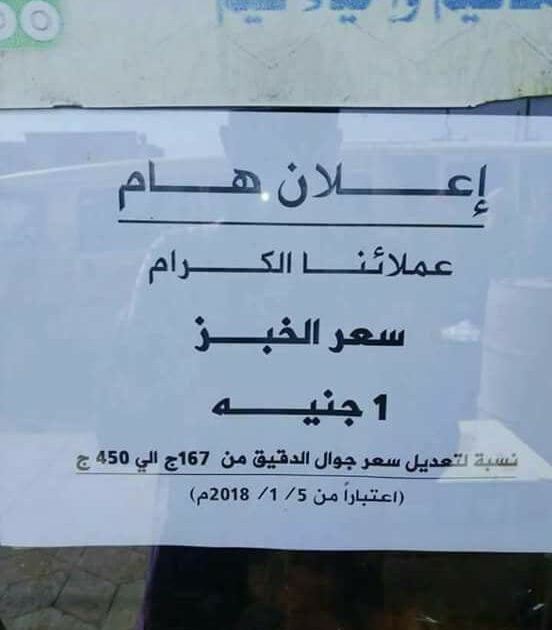 إعلان هام
عملائنا الكرام
سعر الخبز
1 جنيه
نسبة لتعديل سعر جوال الدقيق من 167ج الي 450 ج
(اعتباراً من 5/ 1/ 2018م)